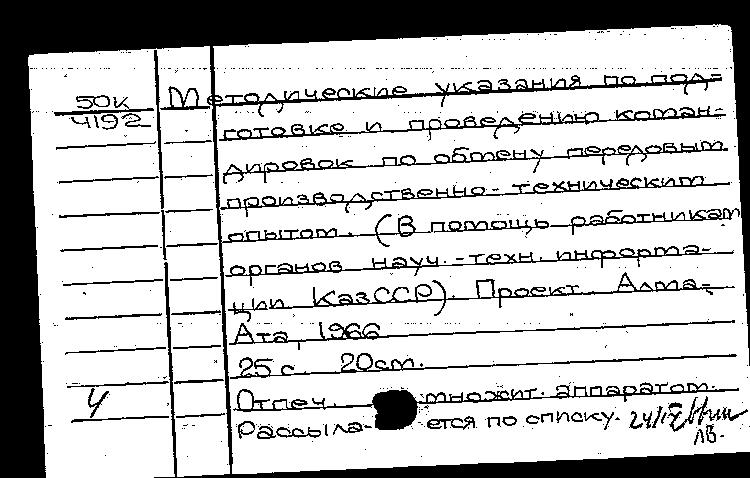 50к
4192
Методические указания по под=
готовке и проведению коман-
дировок по обмену передовым
производственно-техническим
опытом. (В помощь работникам
органов науч.-техн. информа-
ции КазССР). Проект. Алма-
Ата, 1966
25 с. 20см.
Ч Отпеч. множит. аппаратом.
Рассыла- ется по списку.
ЛВ.